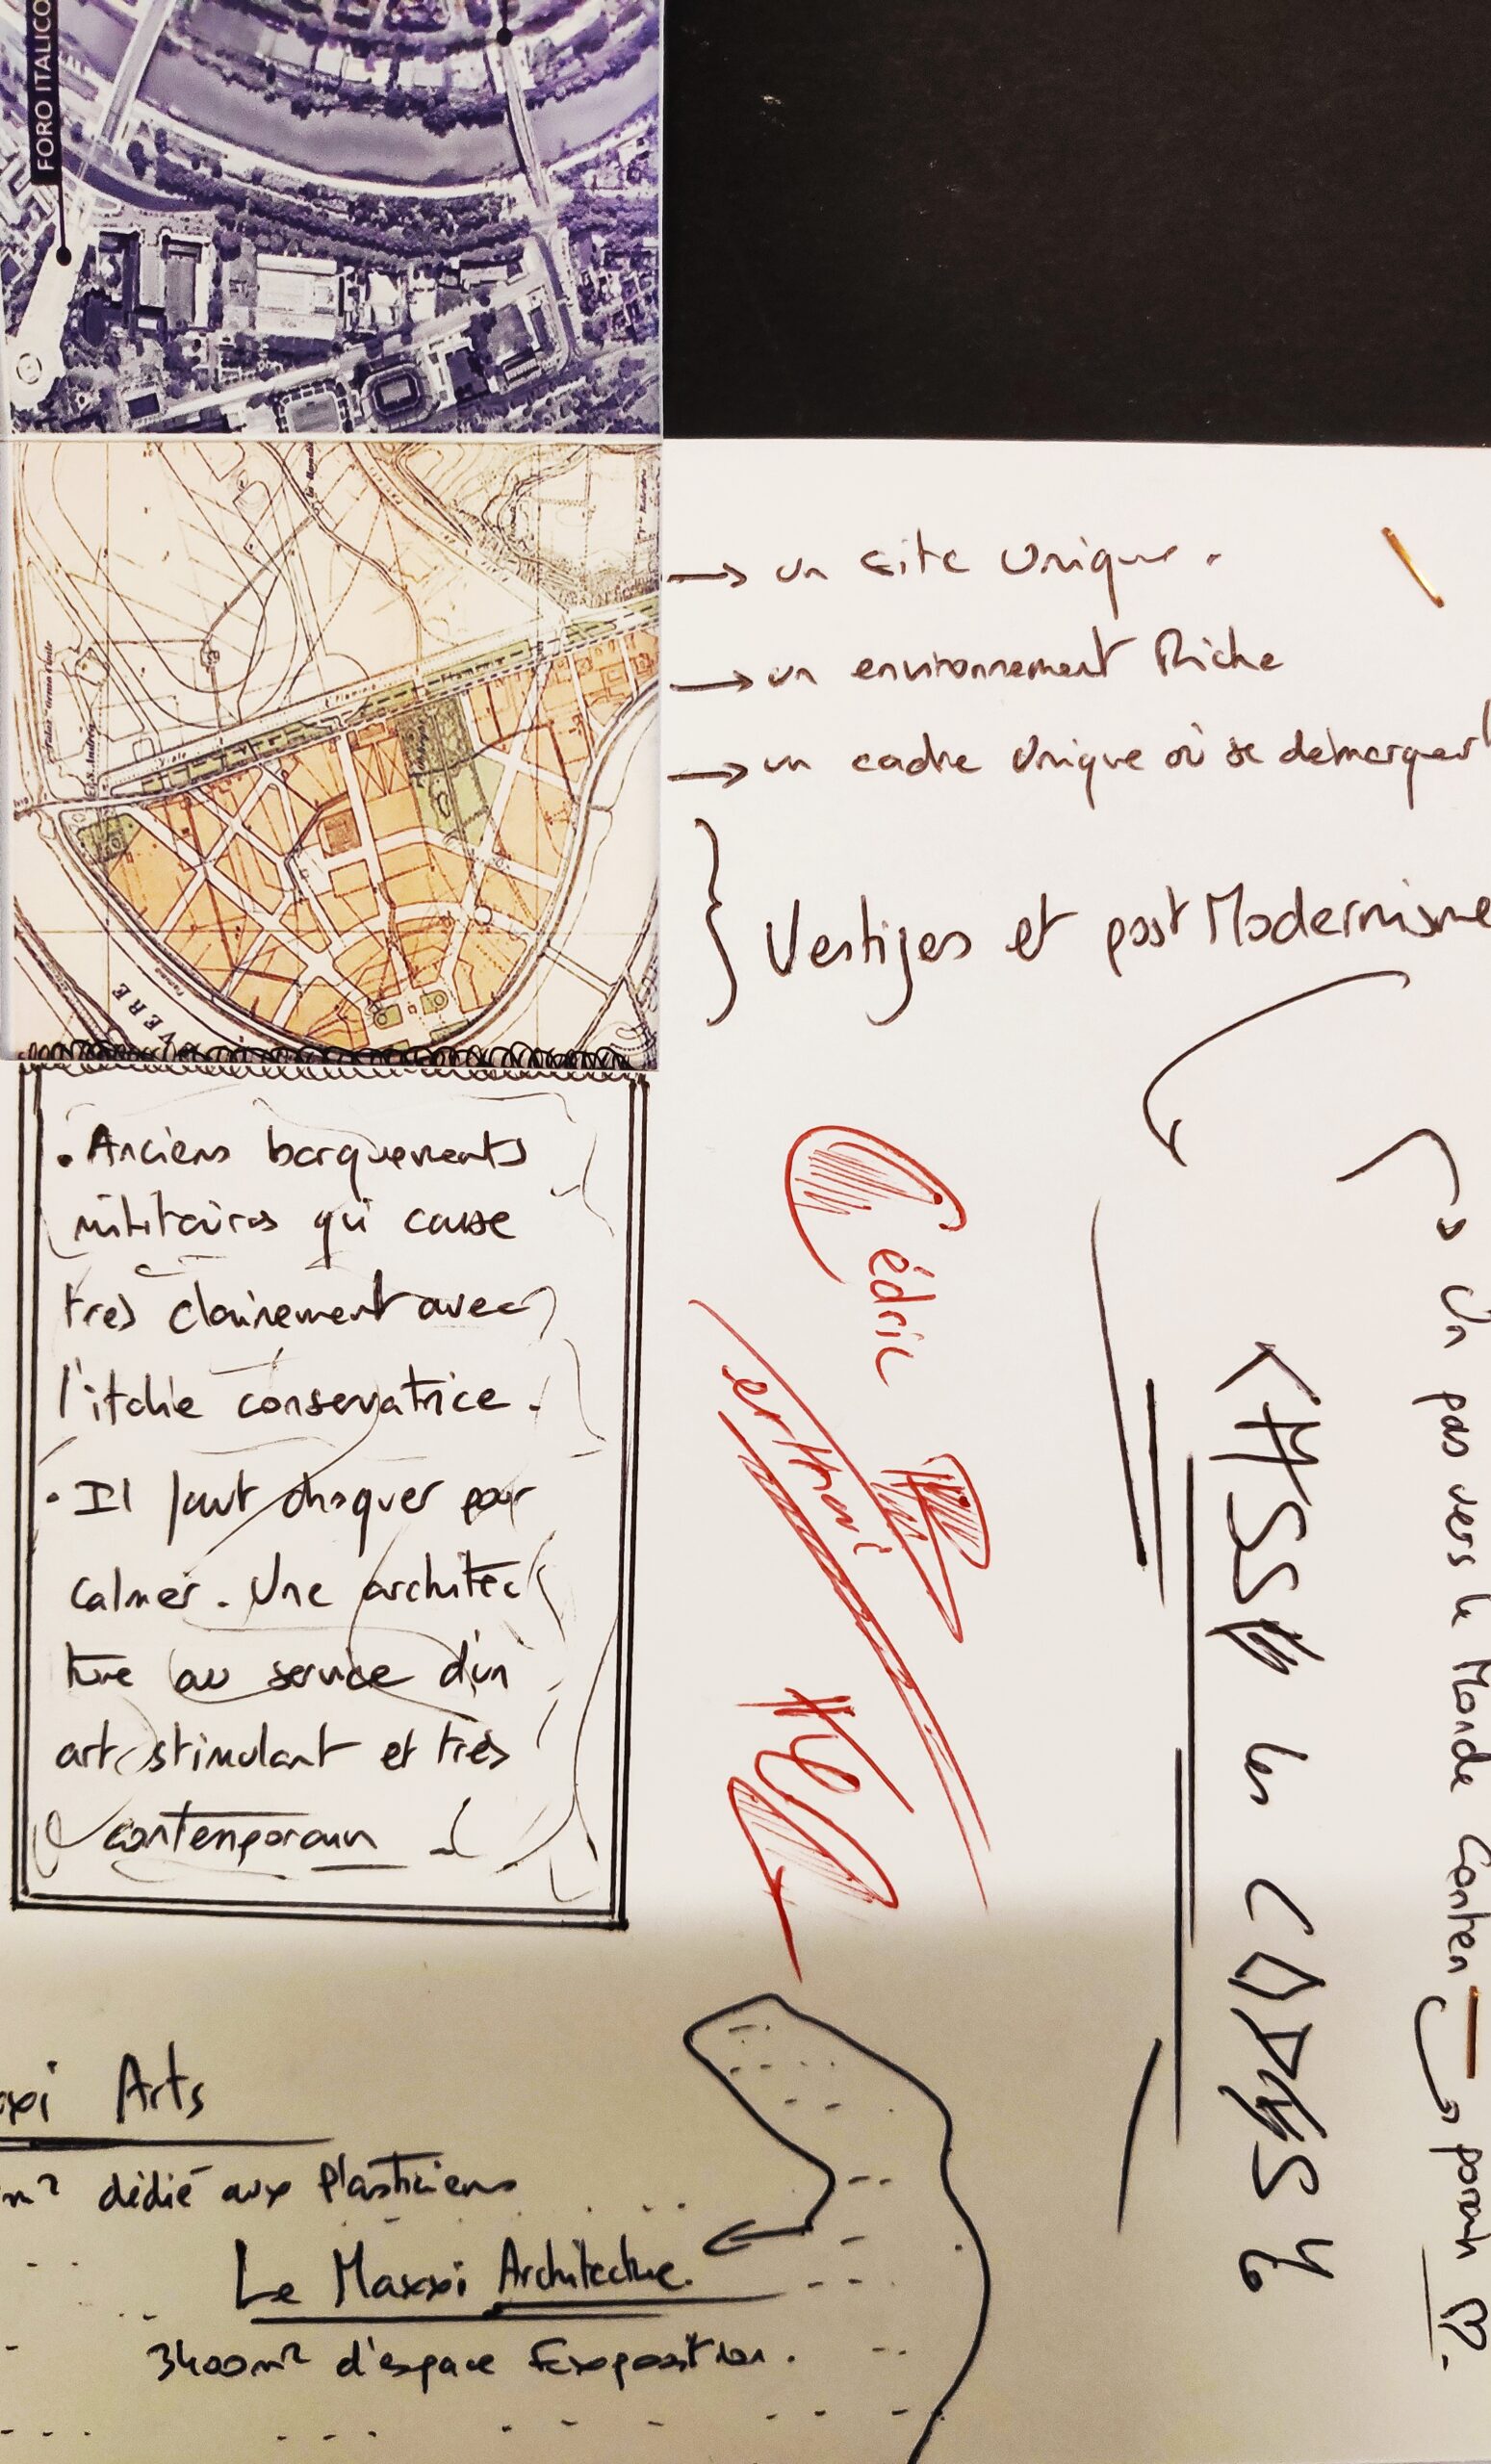 FORO ITALICO
→ un site Unique.
→ un environnement Riche
→ un cadre Unique où se démarquer
} Vestiges et post Modernisme
VERE
• Anciens barquements
militaires qui casse
tres clairement avec
l'italie conservatrice.
• Il faut choquer pour
calmer. Une architec
ture au service d'un
art stimulant et très
contemporain
Cédric
KASSE les CODES
Un pas vers le Monde Conten
porain
xxi Arts
m² dédié aux Plasticiens
Le Maxxi Architecture.
3400m² d'espace Exposition.